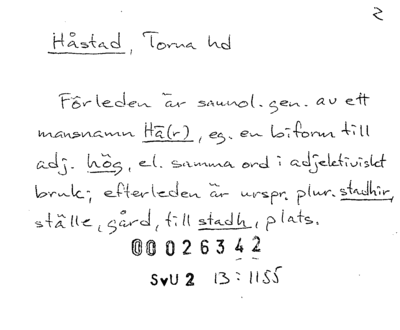 2
Håstad, Torna hd
Förleden är sannol. gen. av ett
mansnamn Hā(r), eg. en biform till
adj. hög, el. samma ord i adjektiviskt
bruk; efterleden är urspr. plur. stadhir,
ställe, gård, till stadh, plats.
00026342
SvU 2 13:1155